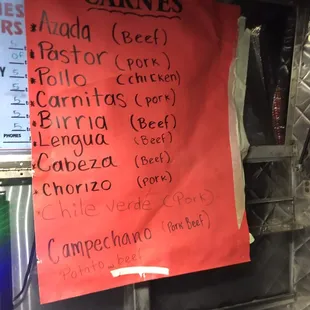 CARNES
*Azada (Beef)
*Pastor (pork)
*Pollo (chicken)
*Carnitas (pork)
*Birria (Beef)
*Lengua (Beef)
*Cabeza (Beef)
*chorizo (pork)
*Chile verde (Pork)
Campechano (Pork Beef)
beef
PHONES